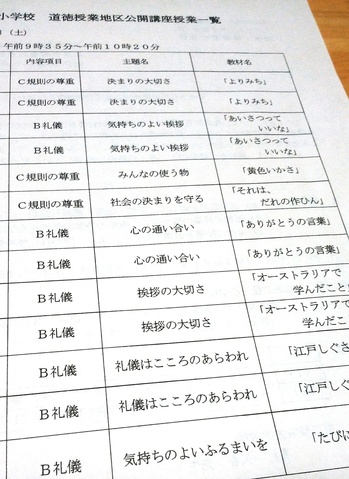 小学校 道徳授業地区公開講座授業一覧
（土）
午前９時３５分～午前１０時２０分
内容項目 主題名 教材名
Ｃ規則の尊重 決まりの大切さ 「よりみち」
Ｃ規則の尊重 決まりの大切さ 「よりみち」
Ｂ礼儀 気持ちのよい挨拶 「あいさつって
いいな」
Ｂ礼儀 気持ちのよい挨拶 「あいさつって
いいな」
Ｃ規則の尊重 みんなの使う物 「黄色いかさ」
Ｃ規則の尊重 社会の決まりを守る 「それは、
だれの作ひん」
Ｂ礼儀 心の通い合い 「ありがとうの言葉」
Ｂ礼儀 心の通い合い 「ありがとうの言葉」
Ｂ礼儀 挨拶の大切さ 「オーストラリアで
学んだこと
Ｂ礼儀 挨拶の大切さ 「オーストラリアで
学んだこ
Ｂ礼儀 礼儀はこころのあらわれ 「江戸しぐさ
Ｂ礼儀 礼儀はこころのあらわれ 「江戸し
Ｂ礼儀 気持ちのよいふるまいを 「たびに